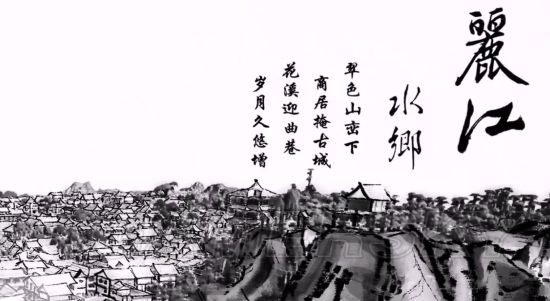 麗江
水鄉
翠色山峦下
商居掩古城
花溪迎曲巷
岁月久悠增